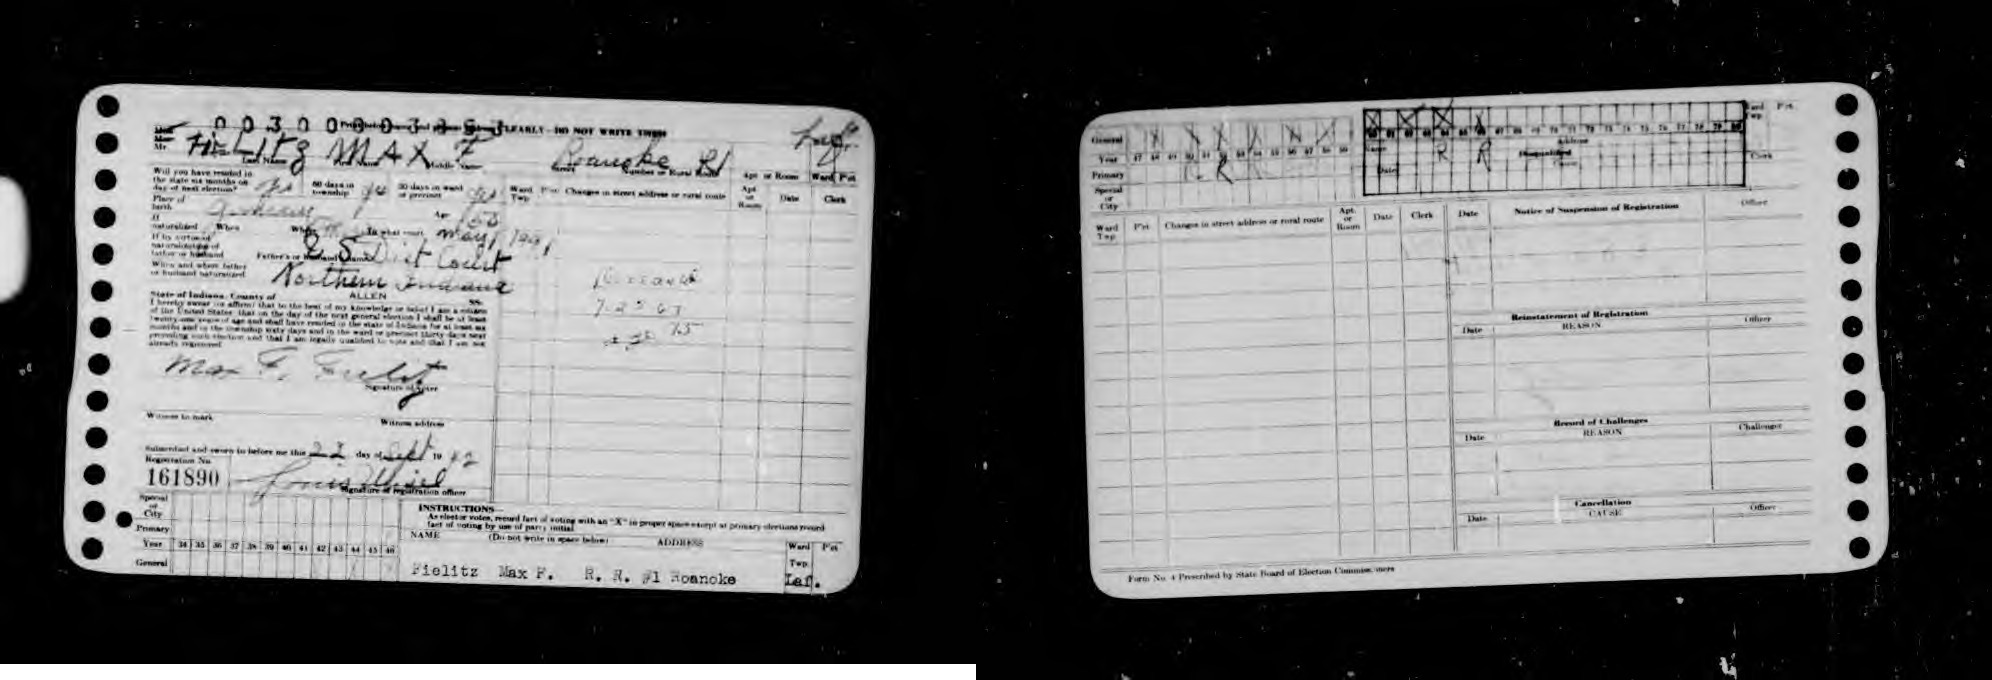 CLEARLY - DO NOT WRITE THESE
Mr. FIELITZ MAX F Roanoke R1
Last Name Middle Name Street Number or Rural Route Apt. or Room Ward Pct
Will you have resided in the state six months on day of next election? yes 60 days in township yes 30 days in ward or precinct yes
Ward Twp. Pct Changes in street address or rural route Apt. or Room Date Clerk
Place of birth Germany Age 50
If naturalized, When Where In what court May 1941
If by virtue of naturalization of father or husband Father's or Husband's Name U S Dist Court
When and where father or husband naturalized Northern Indiana
State of Indiana, County of ALLEN SS.
I hereby swear (or affirm) that to the best of my knowledge or belief I am a citizen
of the United States, that on the day of the next general election I shall be at least
twenty-one years of age and shall have resided in the state of Indiana for at least six
months and in the township sixty days and in the ward or precinct thirty days next
preceding such election and that I am legally qualified to vote and that I am not
already registered
Max F. Fielitz
Signature of Voter
Witness to mark Witness address
Subscribed and sworn to before me this 22 day of Sept 19 42
Registration No.
161890
Signature of registration officer
Special or City
Primary
Year 34 35 36 37 38 39 40 41 42 43 44 45 46
General
INSTRUCTIONS
As elector votes, record fact of voting with an "X" in proper space except at primary elections record
fact of voting by use of party initial
NAME (Do not write in space below) ADDRESS Ward Twp. Pct
Fielitz Max F. R. R. #1 Roanoke Laf.
General X X X X X X X
Year 47 48 49 50 51 52 53 54 55 56 57 58 59
Primary R
Special or City
60 61 62 63 64 65 66 67 68 69 70 71 72 73 74 75 76 77 78 79 80
Name Address
R R Disqualified
Date
Ward Twp. Pct
Clerk
Ward Twp. Pct Changes in street address or rural route Apt. or Room Date Clerk
Date Notice of Suspension of Registration Officer
Reinstatement of Registration
Date REASON Officer
Record of Challenges
Date REASON Challenger
Cancellation
Date CAUSE Officer
Form No. 4 Prescribed by State Board of Election Commissioners